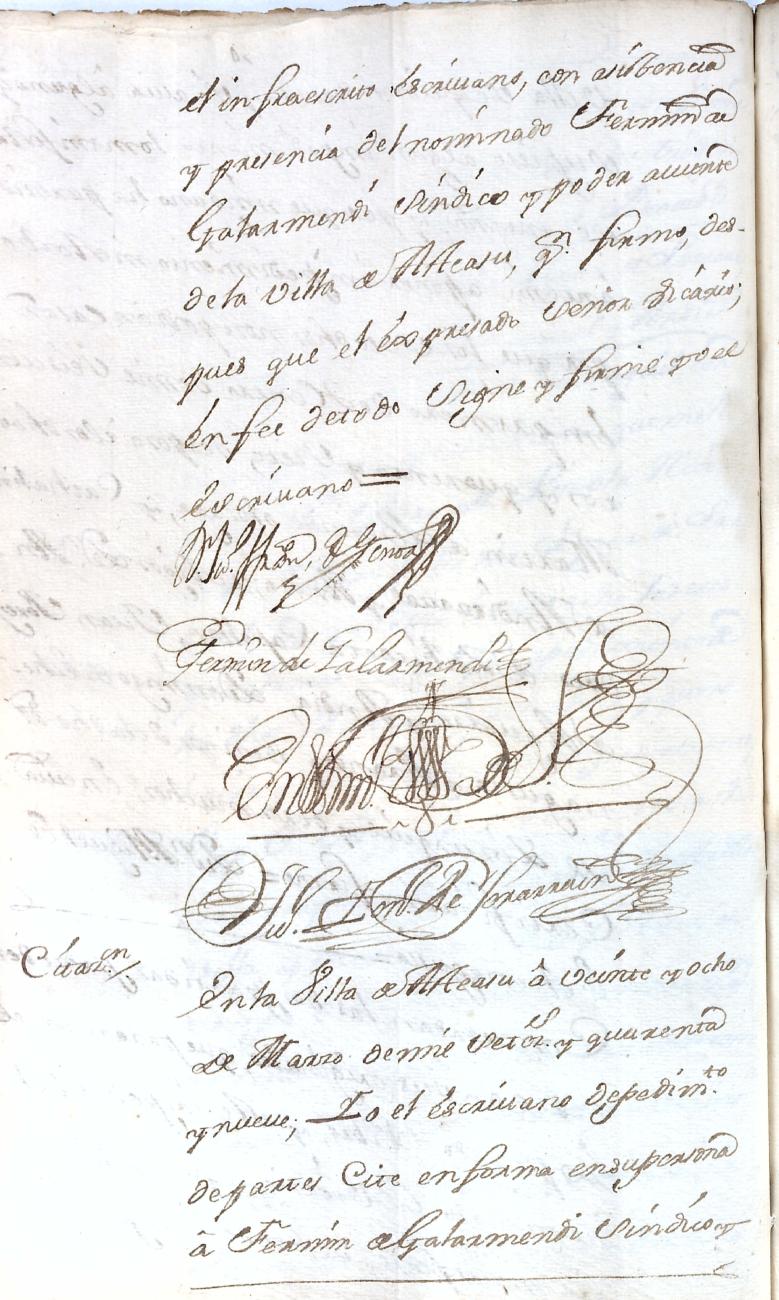 el infraescrito Escrivano, con asistencia
y presencia del nominado Fermin de
Galarmendi Síndico y poder aviente
de la Villa de Atteasu, qn. firmo, des-
pues que el expresado Señor Vicario;
En fee de todo Signe y firmé yo el
Escrivano =
Fermin de Galarmendi
En testim.o de Vd.
Citaz.n /
En la Villa de Atteasu â veinte y ocho
de Marzo de mil Setez.s y quarenta
y nueve; Yo el Escrivano de pedim.to
de partes Cite en forma en su persona
â Fermin de Galarmendi Síndico y